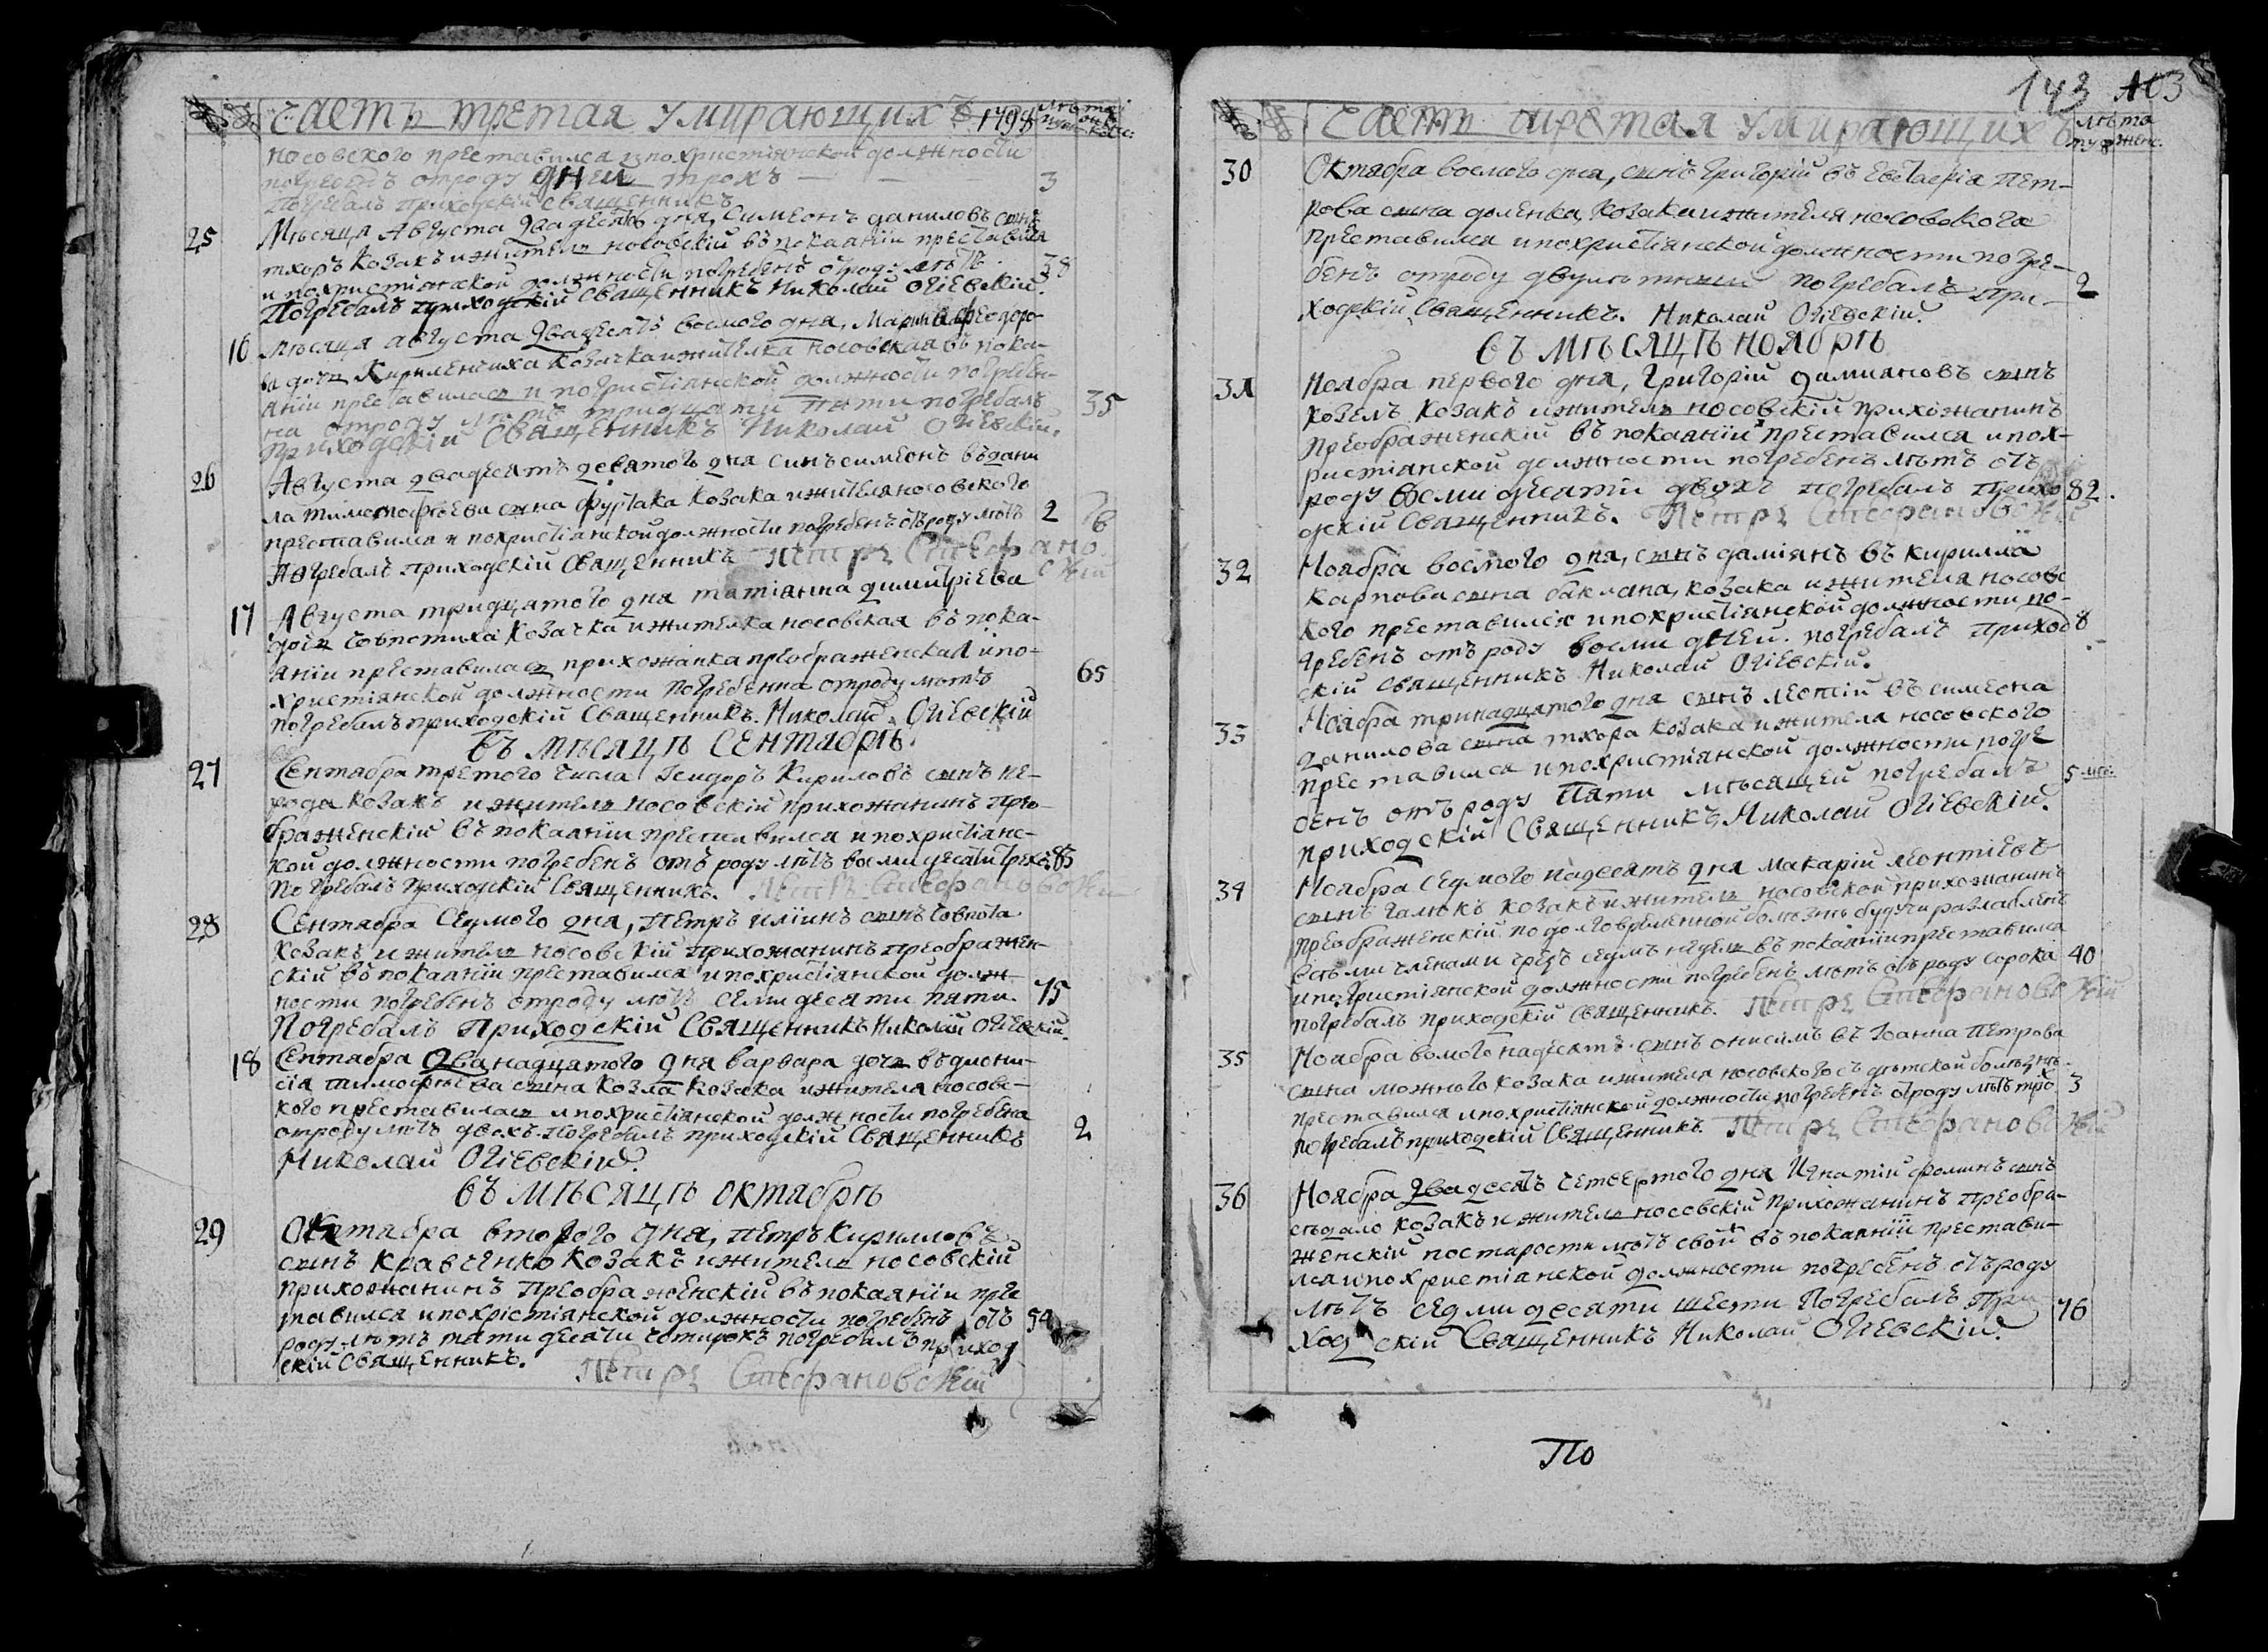 Часть третая умирающихъ 1798 лѣта
муж женс:
носовского преставился ипохристіянской должности
погребенъ отроду дней трохъ — — 3
Погребалъ приходскій священникъ
25 Мѣсяця Августа двадесять дня, Симеонъ даниловъ сынъ
тхоръ козакъ ижитель носовскій въ покаянїи преставился
и похристіянской должности погребенъ отроду лѣтъ 38
Погребалъ приходскій Священникъ Николай Огіевскій.
16 Мѣсяця августа двадесятъ восмого дня, Марина феодоро-
ва дочь Кириленчиха козачка ижителка носовская въ пока-
янїи преставилась и похристіянской должности погребен-
на отроду лѣтъ тридцати пяти погребалъ 35
приходскій Священникъ Николай Огіевскій.
26 Августа двадесятъ девятого дня синъ симеонъ въ дани
ла тимофѣева сына фурсака козака ижителя носовского
преставился и похристіянской должности погребенъ отъ роду лѣтъ 2
Погребалъ приходскій Священникъ Петръ Стефано-
скій
17 Августа тридцятого дня татіянна димитріева
дочь совпотиха козачка ижителка носовская въ пока-
янїи преставилась прихожанка преображенская ипо-
христіянской должности погребенна отроду лѣтъ 65
погребалъ приходскій Священникъ. Николай Огіевскій
въ мѣсяцѣ Сентябрѣ.
27 Сентябра третого числа Ісидоръ Кириловъ сынъ не-
рода козакъ ижитель носовскій прихожанинъ прео-
браженскій въ покаянїи преставился ипохристіянс-
кой должности погребенъ отъ роду лѣтъ восми десяти трехъ 83
погребалъ приходскій Священникъ. Петръ Стефановскій
28 Сентябра Седмого дня, Петръ иліинъ сынъ совпота
козакъ ижитель носовскій прихожанинъ преображен-
скій въ покаянїи преставился ипохристіянской долж-
ности погребенъ отроду лѣтъ семи десяти пяти. 75
Погребалъ Приходскій Священникъ Николай Огіевскій.
18 Сентябра дванадцятого дня варвара дочь въ діони-
сія тимофѣева сына козла козака ижителя носовс-
кого преставилась ипохристіянской должности погребена
отроду лѣтъ двохъ. погребалъ приходскій Священникъ 2
Николай Огіевскій.
въ мѣсяцѣ октябрѣ
29 Октябра второго дня, петръ Кирилловъ
сынъ кравченко козакъ ижитель носовскій
прихожанинъ преображенскій въ покаянїи пре
тавился ипохристіянской должности погребенъ отъ 54
роду лѣтъ пяти десяти чотирохъ погребалъ приход
скій Священникъ.
Петръ Стефановскій
143 103
Часть третая умирающихъ лѣта
муж женс.
30 Октябра восмого дня, сынъ Григорій въ Евстафія Пет-
рова сына доленка, козака ижителя носовского
преставился ипохристіянской должности погре-
бенъ отроду двулѣтный погребалъ при- 2
ходскій Священникъ. Николай Огіевскій.
въ мѣсяцѣ ноябрѣ
31 Ноябра первого дня, Григорій даміановъ сынъ
козелъ козакъ ижитель носовскій прихожанинъ
преображенскій въ покаянїи преставился ипох-
ристіянской должности погребенъ лѣтъ отъ
роду восми десяти двухъ погребалъ Прихо 82.
дскій Священникъ. Петръ Стефановскій
32 Ноябра восмого дня, сынъ даміянъ въ кирилла
карпова сына баклана, козака ижителя носовс
кого преставился ипохристіянской должности по-
гребенъ отъ роду восми дней. погребалъ приход 8
скій Священникъ Николай Огіевскій.
33 Ноябра тринадцятого дня сынъ леонтій въ симеона
данилова сына тхора козака ижителя носовского
преставился ипохристіянской должности погре
бенъ отъ роду Пяти мѣсяцей погребалъ 5 мѣс:
приходскій Священникъ Николай Огіевскій.
34 Ноябра седмого надесятъ дня макарій леонтіевъ
сынъ галюкъ козакъ ижитель носовской прихожанинъ
преображенскій по долговременной болѣзнѣ будучи разслабленъ
всѣми членами чрезъ седмъ недель въ покаянїи преставился
ипохристіянской должности погребенъ лѣтъ отъ роду сорока 40
погребалъ приходскій Священникъ. Петръ Стефановскій
35 Ноябра восмого надесятъ сынъ онисимъ въ Іоанна Петрова
сына можного козака ижителя носовского съ дѣтской болѣзнѣ
преставился ипохристіянской должности погребенъ отроду лѣтъ трохъ 3
погребалъ приходскій Священникъ. Петръ Стефановскій
36 Ноябра двадесятъ четвертого дня Игнатій фоминъ сынъ
сѣдало козакъ ижитель носовскій прихожанинъ преобра-
женскій постарости лѣтъ своїй въ покаянїи престави-
лся ипохристіянской должности погребенъ отъ роду
лѣтъ седми десяти шести Погребалъ При 76
ходскій Священникъ Николай Огіевскій.
По